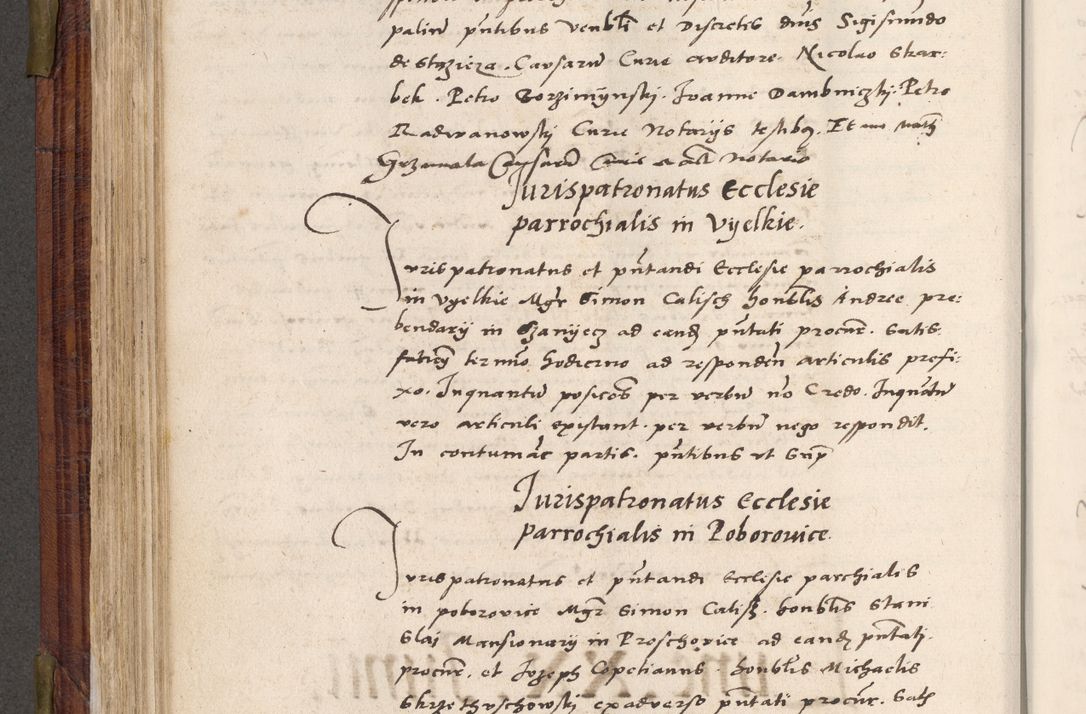 palim pntibus venbli et Discretis dnis Sigismundo
de Stzieza. Causarum Curie auditore. Nicolao Skar:
bek. Petro Gorzimynski. Joanne Dambniczki. Petro
Radwanowski Curie Notariis testibq. Et me Math
Grzimala Causarum Curie notario
Jurispatronatus Ecclesie
parrochialis in Vyelkie.
Jurispatronatus et pntandi Ecclesie parrochialis
in Vyelkie Mgr Simon Calisch honblis Andree pre:
bendarii in Xanyecz ad eand pntati procur. satis
faticn termino hodierno ad responden articulis prefi:
xo. Inquantum posicoes per verbum no Credo. Inquantum
vero articuli existunt. per verbum nego respondit.
In contumac partis. pntibus ut supr
Jurispatronatus Ecclesie
parrochialis in Poborouice.
Jurispatronatus et pntandi Ecclesie parchialis
in poborovice Mgr Simon Calisz. honblis Stani
slai Mansionarii in Proschovice ad eand pntati.
procur. et Joseph Copetianus honblis Michaelis
Skrzethuschowski exadverso pntati procur. Satis